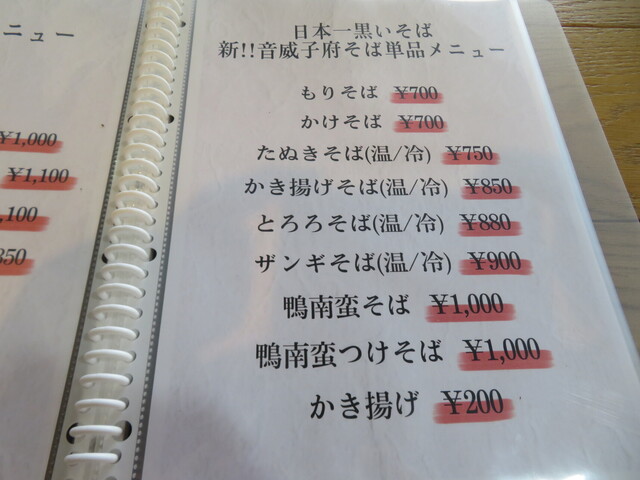 ニュー
¥1,000
¥1,100
,100
850
日本一黒いそば
新!!音威子府そば単品メニュー
もりそば ¥700
かけそば ¥700
たぬきそば(温/冷) ¥750
かき揚げそば(温/冷) ¥850
とろろそば(温/冷) ¥880
ザンギそば(温/冷) ¥900
鴨南蛮そば ¥1,000
鴨南蛮つけそば ¥1,000
かき揚げ ¥200